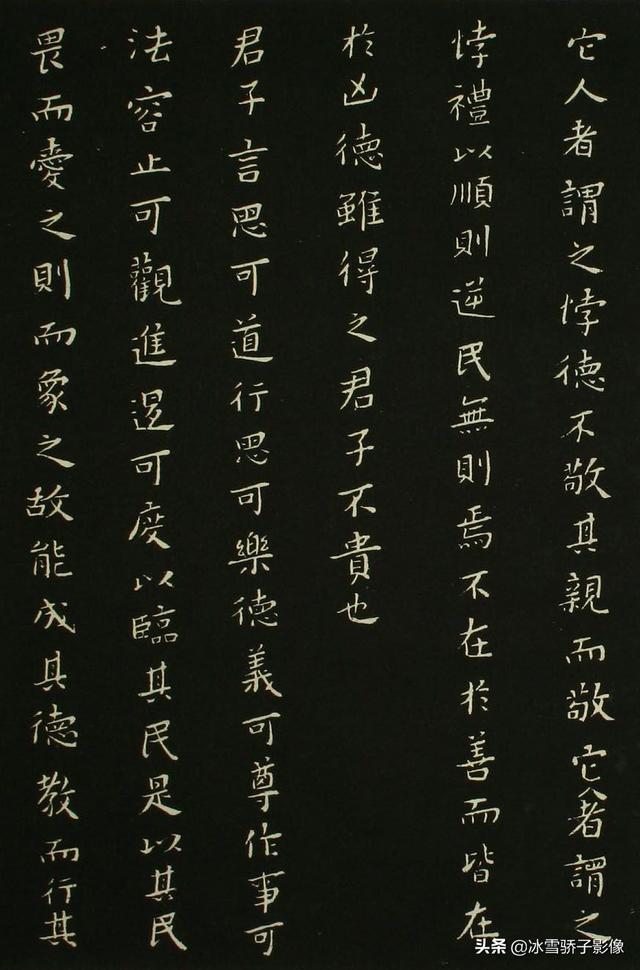 它人者謂之悖德不敬其親而敬它人者謂之
悖禮以順則逆民無則焉不在於善而皆在
於凶德雖得之君子不貴也
君子言思可道行思可樂德義可尊作事可
法容止可觀進退可度以臨其民是以其民
畏而愛之則而象之故能成其德教而行其
头条 @冰雪骄子影像